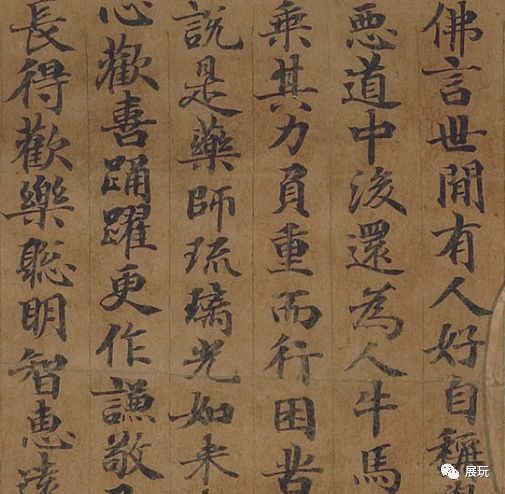 佛言世間有人好自稱
悪道中後還為人牛馬
乗其力負重而行困苦
說是藥師琉璃光如来
心歡喜踊躍更作謙敬
長得歡樂聡明智惠遠
展玩